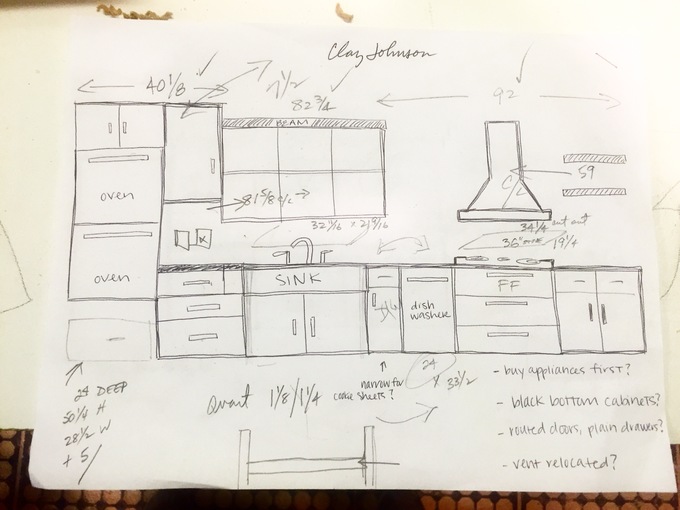 Clay Johnson
40 1/8
7 1/2
82 3/4
92
BEAM
oven
81 5/8 C/L
C/L
59
32 11/16 x 21 9/16
34 1/4 cut out
36"
19 1/4
oven
SINK
FF
dish
washer
24
x 33 1/2
narrow for
cookie sheets?
24 DEEP
50 1/4 H
28 1/2 W
+ 5/
1 1/8 / 1 1/4
- buy appliances first?
- black bottom cabinets?
- routed doors, plain drawers?
- vent relocated?